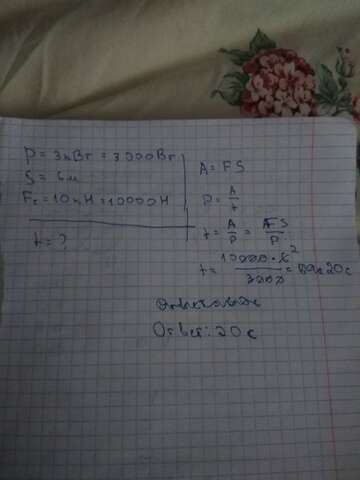 P = 3кВт = 3000Вт
S = 6м
Fт = 10кН = 10000Н
t = ?
A = FS
P = A/t
t = A/P = FS/P
t = 10000 · 6 / 3000 = 20с
Ответ: 20с